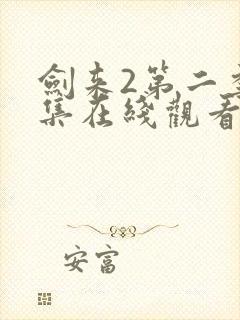 劍来2第二季
集在綫觀看
安富